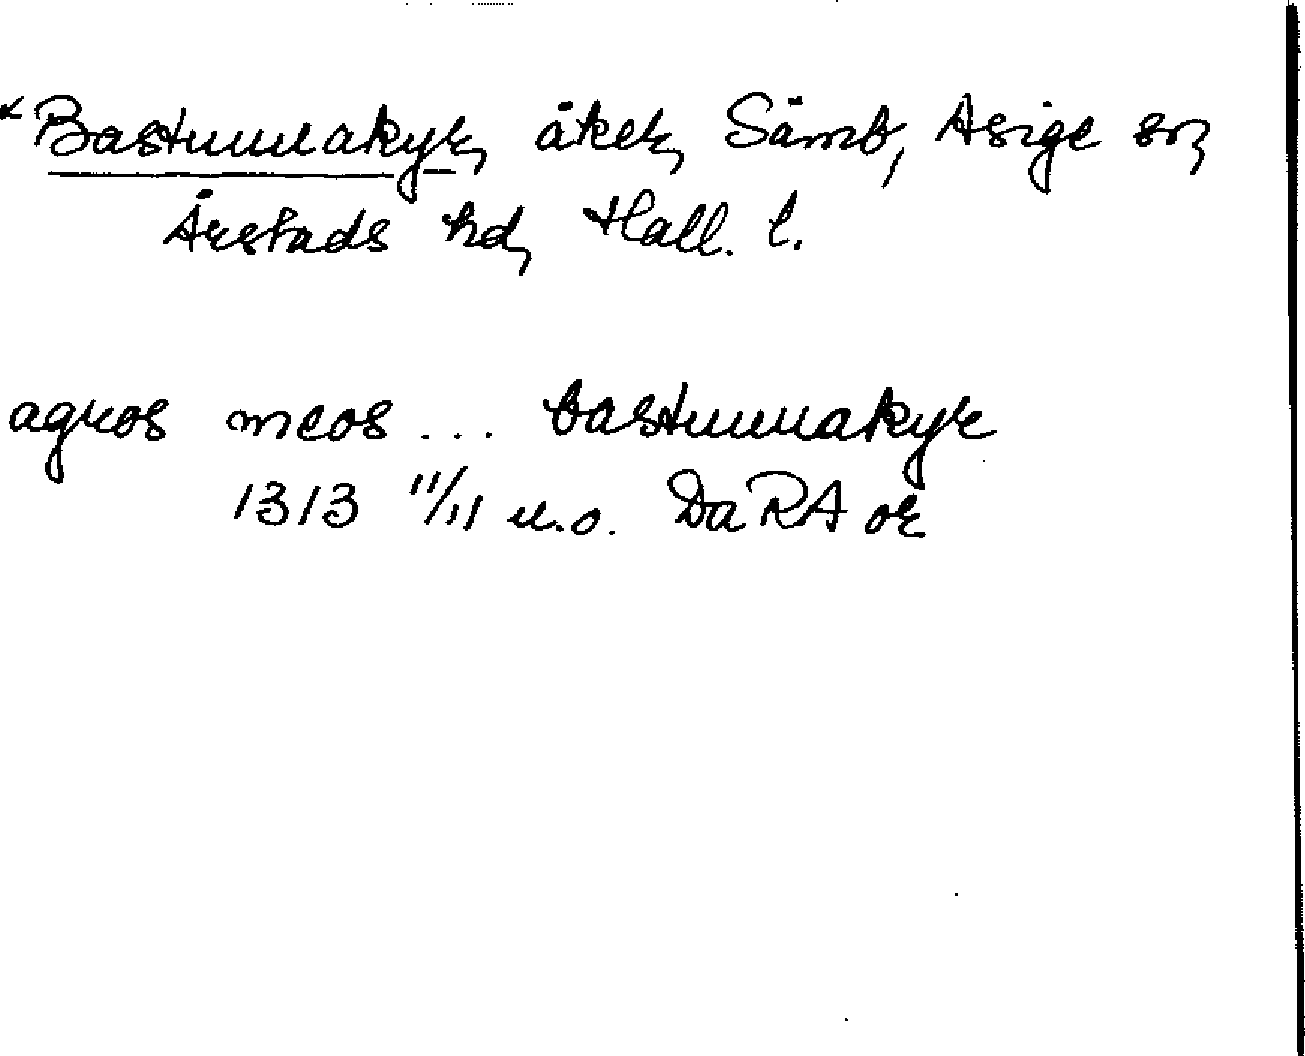 *Bastumakyr, åker, Sämb, Asige sn,
Årstads hd, Hall. l.
agros meos ... bastumakyr
1313 11/11 u.o. DaRA or